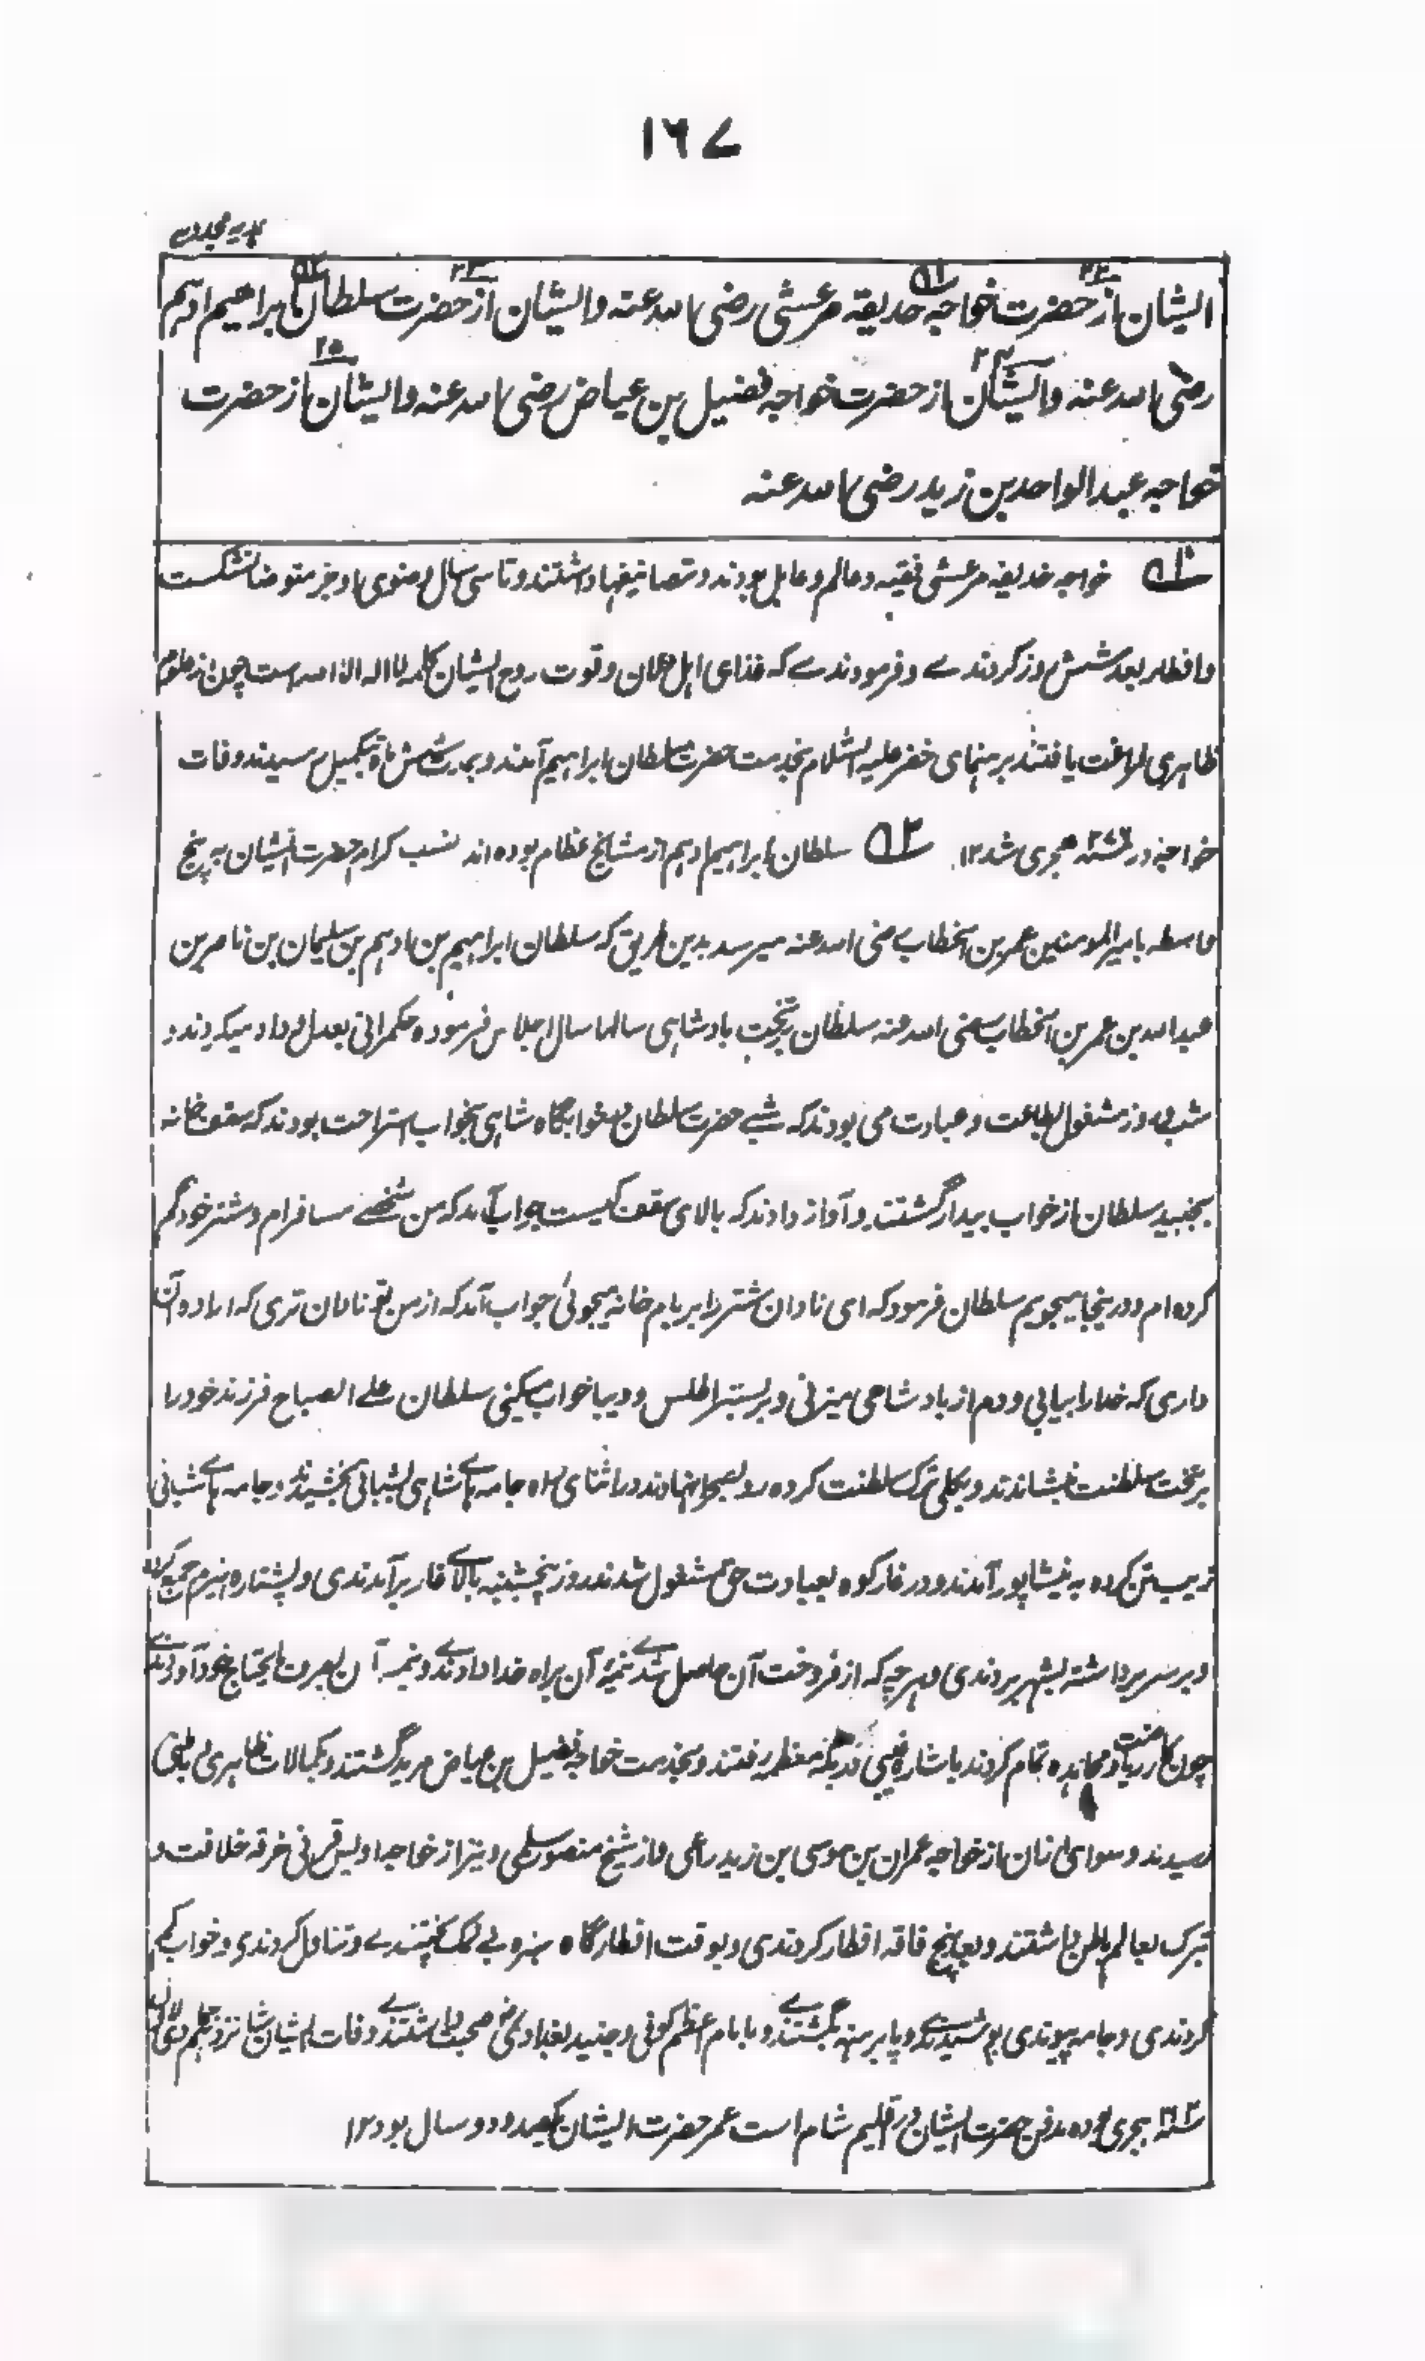 ١٦٧
ایشان از حضرت خواجه حذیفه مرعشی رضی الله عنه و ایشان از حضرت سلطان ابراهیم ادهم
رضی الله عنه و ایشان از حضرت خواجه فضیل بن عیاض رضی الله عنه و ایشان از حضرت
خواجه عبدالواحد بن زید رضی الله عنه
خواجه حذیفه مرعشی فقیه و عالم و عامل بودند و تصانیفها داشتند و تا سی سال وضوی او جز متوضا نشکست
و افطار بعد شش روز کردندے و فرمودندے که غذای اہل و قوت روح ایشان کلمه لا اله الا الله است چون از علوم
ظاہری فراغت یافتند برہنمای خضر علیه السلام بخدمت حضرت سلطان ابراہیم آمدند و بمدت شش ماه بتکمیل رسیدند وفات
خواجه در ہجری شد ١٢ سلطان ابراہیم ادہم از مشایخ عظام بوده اند نسب کرام حضرت ایشان به پنج
واسطه بامیرالمومنین عمر بن الخطاب رضی الله عنه میرسد بدین طریق که سلطان ابراہیم بن ادہم بن سلیمان بن ناصر بن
عبدالله بن عمر بن الخطاب رضی الله عنه سلطان بر تخت بادشاہی سالها سال اجلاس فرموده حکمرانی بعدل و داد میکردند و
شب و روز مشغول بطاعت و عبادت می بودند که شبے حضرت سلطان در خوابگاه شاہی بخواب استراحت بودند که سقف خانه
بجنبید سلطان از خواب بیدار گشتند و آواز دادند که بالای سقف کیست جواب آمد که من شخصے مسافرام و شتر خود گم
کرده ام و درینجا میجویم سلطان فرمود که ای نادان شتر را بر بام خانه میجوئی جواب آمد که از من تو نادان تری که اراده آن
داری که خدا را بیابی و دم از بادشاهی میزنی و بر بستر اطلس و دیبا خواب میکنی سلطان علے الصباح فرزند خود را
بر تخت سلطنت نشاندند و بکلی ترک سلطنت کرده رو بصحرا نهادند در اثنای راه جامه ہاے شاہی بشبانی بخشیدند و جامه ہاے شبانی
زیب تن کرده به نیشاپور آمدند و در غار کوه بعبادت حق مشغول شدند روز پنجشنبه بالاے غار برآمدندی و پشتاره ہیزم جمع
و بر سر برداشته بشہر بردندی و ہر چه که از فروخت آن حاصل شدے نیمه آن براه خدا دادندے و نیمه آن بصرف مایحتاج خود آوردندے
چون کار ریاضت و مجاہده تمام کردند باشاره غیبی بمکه معظمه رفتند و بخدمت خواجه فضیل بن عیاض مرید گشتند و بکمالات ظاہری و باطنی
رسیدند و سوای ازان از خواجه عمران بن موسی بن زید راعی و از شیخ منصور سلمی و نیز از خواجه اویس قرنی خرقه خلافت و
تبرک بعالم باطن داشتند و بعد پنج فاقه افطار کردندی و بوقت افطار گاه سبزه بے نمک پختندے و تناول کردندی و خواب کم
کردندی و جامه پیوندی پوشیدندے و پا برہنه گشتندے و با امام اعظم کوفی و جنید بغدادی صحبت داشتندے وفات ایشان شانزدہم
ہجری بوده مدفن حضرت ایشان در اقلیم شام است عمر حضرت ایشان یکصد و دو سال بود ١٢